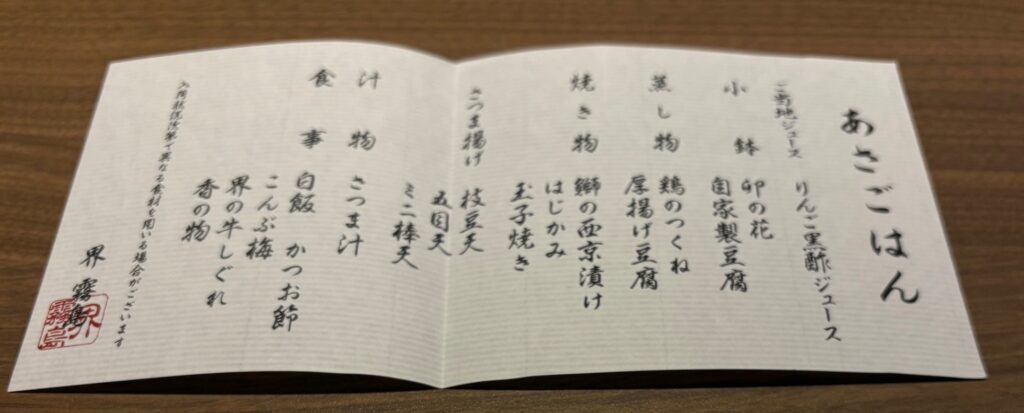 あさごはん
ご当地ジュース りんご黒酢ジュース
小鉢 卯の花
自家製豆腐
蒸し物 鶏のつくね
厚揚げ豆腐
焼き物 鰤の西京漬け
はじかみ
玉子焼き
さつま揚げ 枝豆天
五目天
ミニ棒天
汁物 さつま汁
食事 白飯 かつお節
こんぶ梅
界の牛しぐれ
香の物
入荷状況等で異なる食材を用いる場合がございます
界 霧島
界
霧島